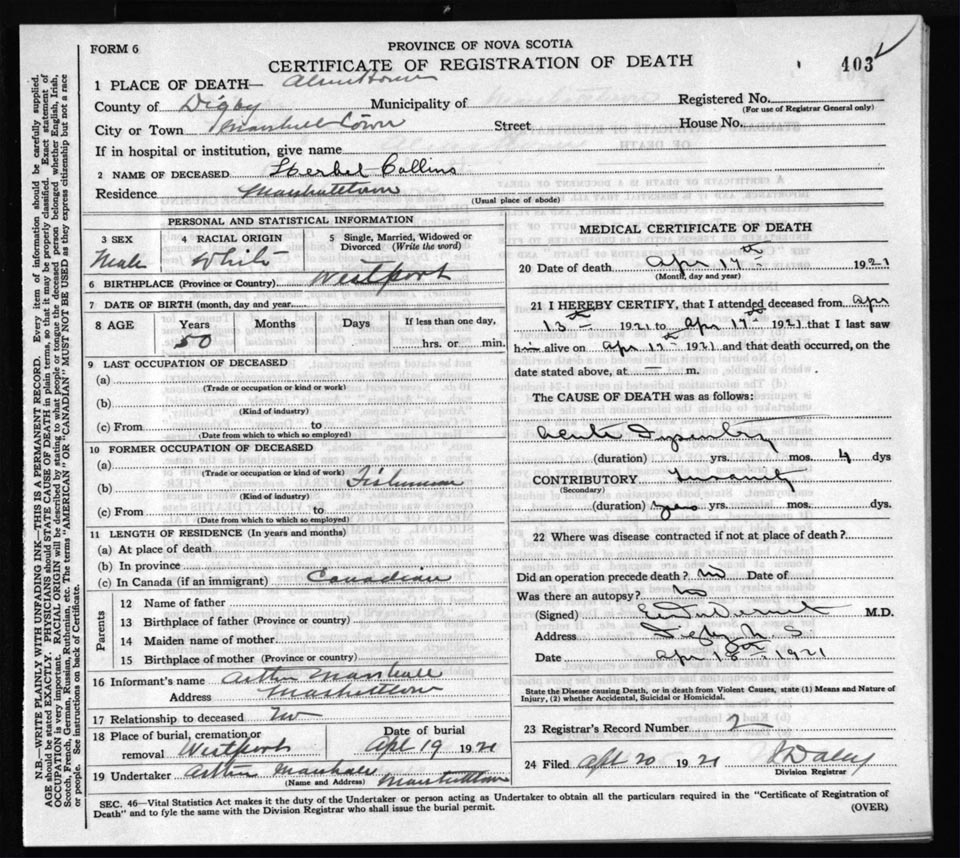 FORM 6
PROVINCE OF NOVA SCOTIA
CERTIFICATE OF REGISTRATION OF DEATH
403
1 PLACE OF DEATH— Alms House
County of Digby Municipality of Registered No.
(For use of Registrar General only)
City or Town Marshall Town Street House No.
If in hospital or institution, give name
2 NAME OF DECEASED Herbel Collins
Residence Marshalltown
(Usual place of abode)
PERSONAL AND STATISTICAL INFORMATION
3 SEX
Male
4 RACIAL ORIGIN
White
5 Single, Married, Widowed or Divorced (Write the word)
6 BIRTHPLACE (Province or Country) Westport
7 DATE OF BIRTH (month, day and year)
8 AGE Years Months Days If less than one day,
50 hrs. or min.
9 LAST OCCUPATION OF DECEASED
(a)
(Trade or occupation or kind or work)
(b)
(Kind of industry)
(c) From to
(Date from which to which so employed)
10 FORMER OCCUPATION OF DECEASED
(a)
(Trade or occupation or kind of work)
(b) Fisherman
(Kind of industry)
(c) From to
(Date from which to which so employed)
11 LENGTH OF RESIDENCE (In years and months)
(a) At place of death
(b) In province
(c) In Canada (if an immigrant) Canadian
Parents
12 Name of father
13 Birthplace of father (Province or country)
14 Maiden name of mother
15 Birthplace of mother (Province or country)
16 Informant's name Arthur Marshall
Address Marshalltown
17 Relationship to deceased no
18 Place of burial, cremation or removal Westport
Date of burial
Apl 19 1921
19 Undertaker Arthur Marshall Marshalltown
(Name and Address)
MEDICAL CERTIFICATE OF DEATH
20 Date of death Apr 17th 1921
(Month, day and year)
21 I HEREBY CERTIFY, that I attended deceased from Apr
13th 1921 to Apr 17th 1921 that I last saw
him alive on Apr 17th 1921 and that death occurred, on the
date stated above, at — m.
The CAUSE OF DEATH was as follows:
Acute Dysentery
(duration) yrs. mos. 4 dys
CONTRIBUTORY Insanity
(Secondary)
(duration) years yrs. mos. dys.
22 Where was disease contracted if not at place of death?
Did an operation precede death? No Date of
Was there an autopsy? No
(Signed) M.D.
Address Digby N. S.
Date Apr 18th 1921
State the Disease causing Death, or in death from Violent Causes, state (1) Means and Nature of
Injury, (2) whether Accidental, Suicidal or Homicidal.
23 Registrar's Record Number 2
24 Filed Apl 20 1921
Division Registrar
SEC. 46—Vital Statistics Act makes it the duty of the Undertaker or person acting as Undertaker to obtain all the particulars required in the "Certificate of Registration of
Death" and to fyle the same with the Division Registrar who shall issue the burial permit.
(OVER)
N.B.—WRITE PLAINLY WITH UNFADING INK—THIS IS A PERMANENT RECORD. Every item of information should be carefully supplied.
AGE should be stated EXACTLY. PHYSICIANS should STATE CAUSE OF DEATH in plain terms, so that it may be properly classified. Exact statement of
OCCUPATION is very important. RACIAL ORIGIN will be described by stating to what people or tongue the deceased person belonged whether English, Irish,
Scotch, French, German, Russian, Ruthenian, etc. The terms "AMERICAN" OR "CANADIAN" MUST NOT BE USED as they express citizenship but not a race
or people. See instructions on back of Certificate.